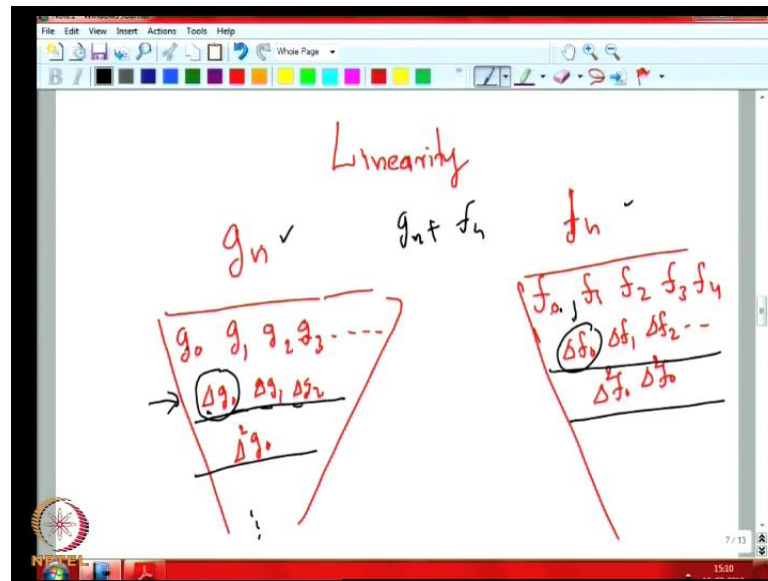 File Edit View Insert Actions Tools Help
Whole Page
B I
Linearity
gₙ ✓ gₙ + fₙ fₙ ✓
g₀ g₁ g₂ g₃ ....
Δg₀ Δg₁ Δg₂
Δ²g₀
⋮
f₀, f₁ f₂ f₃ f₄
Δf₀ Δf₁ Δf₂ ..
Δ²f₀ Δ²f₀
NPTEL
7 / 13
15:10